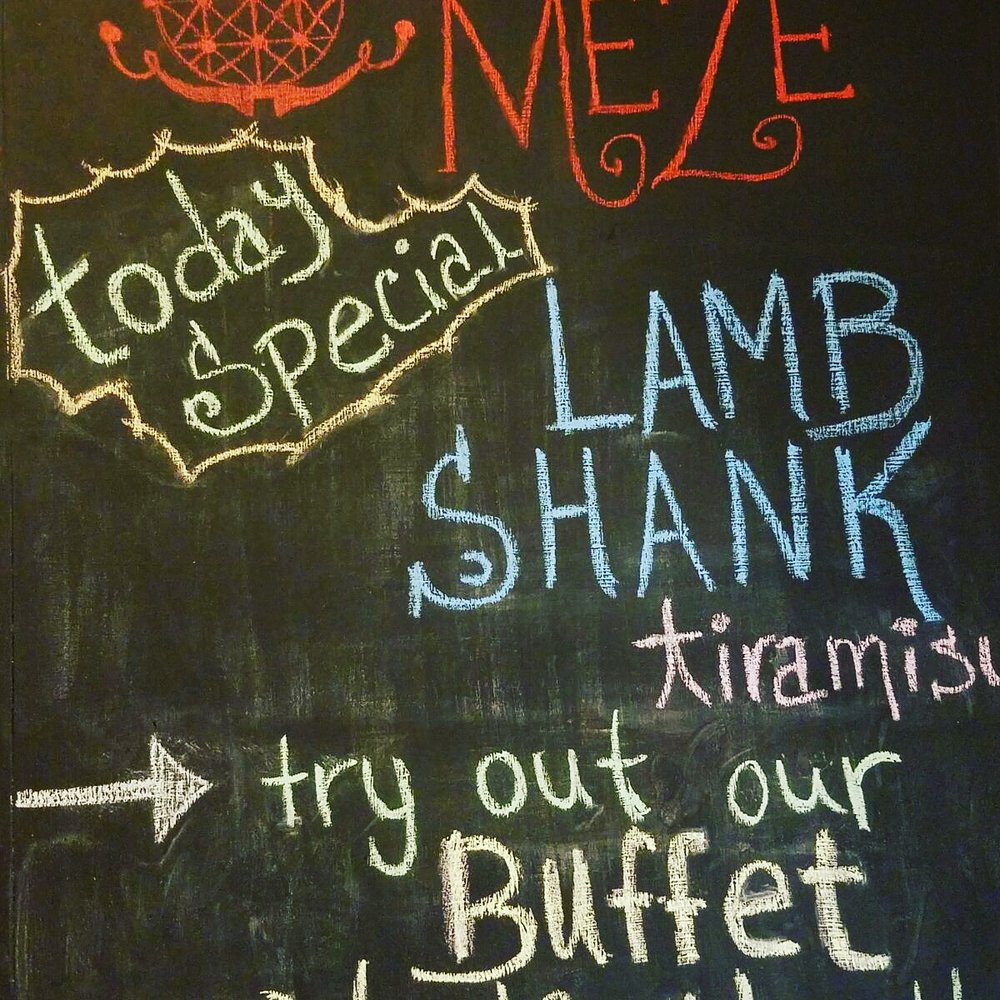 MEZE
today
special
LAMB
SHANK
tiramisu
try out our
Buffet